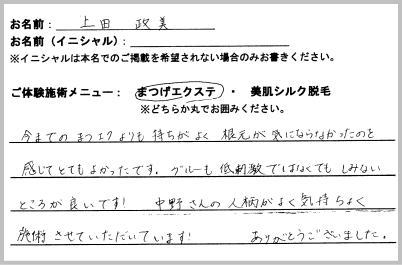 お名前： 上田 政美
お名前（イニシャル）：
※イニシャルは本名でのご掲載を希望されない場合のみお書きください。
ご体験施術メニュー： まつげエクステ ・ 美肌シルク脱毛
※どちらか丸でお囲みください。
今までのまつエクよりも持ちがよく 根元が気にならなかったのと
感じてとてもよかったです。グルーも低刺激ではなくてもしみない
ところが良いです! 中野さんの人柄がよく気持ちよく
施術させていただいています! ありがとうございました。